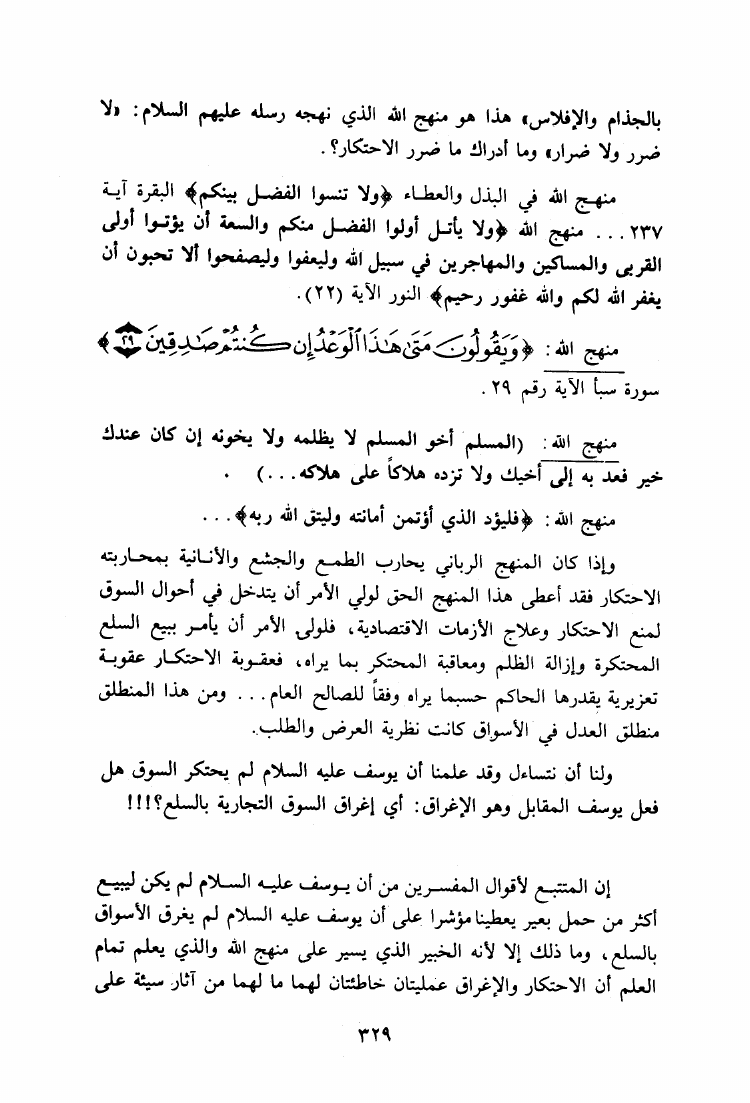 بالجذام والإفلاس» هذا هو منهج الله الذي نهجه رسله عليهم السلام: «لا
ضرر ولا ضرار» وما أدراك ما ضرر الاحتكار؟.
منهج الله في البذل والعطاء ﴿ولا تنسوا الفضل بينكم﴾ البقرة آية
٢٣٧... منهج الله ﴿ولا يأتل أولوا الفضل منكم والسعة أن يؤتوا أولى
القربى والمساكين والمهاجرين في سبيل الله وليعفوا وليصفحوا ألا تحبون أن
يغفر الله لكم والله غفور رحيم﴾ النور الآية (٢٢).
منهج الله: ﴿وَيَقُولُونَ مَتَىٰ هَٰذَا ٱلْوَعْدُ إِن كُنتُمْ صَٰدِقِينَ ٢٩﴾
سورة سبأ الآية رقم ٢٩.
منهج الله: (المسلم أخو المسلم لا يظلمه ولا يخونه إن كان عندك
خير فعد به إلى أخيك ولا تزده هلاكاً على هلاكه...) .
منهج الله: ﴿فليؤد الذي أؤتمن أمانته وليتق الله ربه﴾...
وإذا كان المنهج الرباني يحارب الطمع والجشع والأنانية بمحاربته
الاحتكار فقد أعطى هذا المنهج الحق لولي الأمر أن يتدخل في أحوال السوق
لمنع الاحتكار وعلاج الأزمات الاقتصادية، فلولى الأمر أن يأمر ببيع السلع
المحتكرة وإزالة الظلم ومعاقبة المحتكر بما يراه، فعقوبة الاحتكار عقوبة
تعزيرية يقدرها الحاكم حسبما يراه وفقاً للصالح العام... ومن هذا المنطلق
منطلق العدل في الأسواق كانت نظرية العرض والطلب.
ولنا أن نتساءل وقد علمنا أن يوسف عليه السلام لم يحتكر السوق هل
فعل يوسف المقابل وهو الإغراق: أي إغراق السوق التجارية بالسلع؟!!!
إن المتتبع لأقوال المفسرين من أن يوسف عليه السلام لم يكن ليبيع
أكثر من حمل بعير يعطينا مؤشرا على أن يوسف عليه السلام لم يغرق الأسواق
بالسلع، وما ذلك إلا لأنه الخبير الذي يسير على منهج الله والذي يعلم تمام
العلم أن الاحتكار والإغراق عمليتان خاطئتان لهما ما لهما من آثار سيئة على
٣٢٩